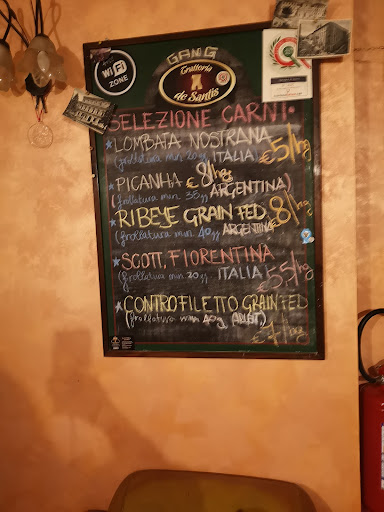 WiFi
ZONE
GANG
Trattoria
de Santis
SELEZIONE CARNI
LOMBATA NOSTRANA
(frollatura min. 20gg ITALIA € 5/hg
PICANHA € 8/hg
(frollatura min. 35gg ARGENTINA)
RIBEYE GRAIN FED 8/hg
(frollatura min. 40gg ARGENTINA €
SCOTT. FIORENTINA
(frollatura min. 20gg ITALIA € 5,5/hg
CONTROFILETTO GRAIN FED
(frollatura min 40g,
€ /hg